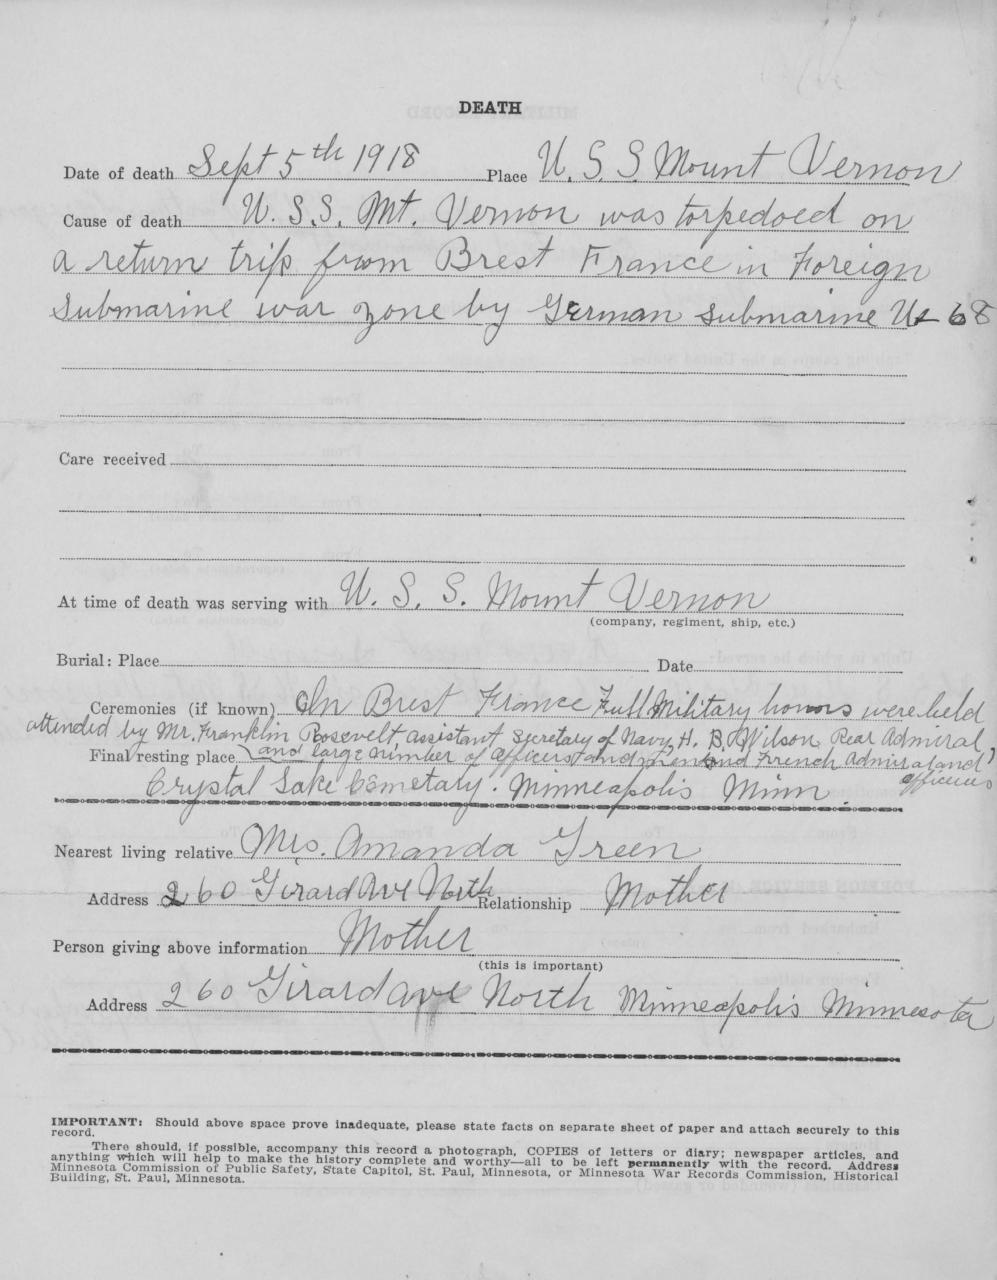 DEATH
Date of death Sept 5th 1918 Place U. S. S Mount Vernon
Cause of death U. S. S. Mt. Vernon was torpedoed on
a return trip from Brest France in Foreign
Submarine war zone by German Submarine U 68
Care received
At time of death was serving with U. S. S. Mount Vernon
(company, regiment, ship, etc.)
Burial: Place Date
Ceremonies (if known) In Brest France Full Military honors were held
attended by Mr. Franklin Roosevelt assistant Secretary of Navy, H. B. Wilson Rear Admiral,
Final resting place and large number of officers and men and French Admiral and
officers
Crystal Lake Cemetary. Minneapolis Minn.
Nearest living relative Mrs. Amanda Green
Address 260 Girard Ave North Relationship Mother
Person giving above information Mother
(this is important)
Address 260 Girard Ave North Minneapolis Minnesota
IMPORTANT: Should above space prove inadequate, please state facts on separate sheet of paper and attach securely to this
record.
There should, if possible, accompany this record a photograph, COPIES of letters or diary; newspaper articles, and
anything which will help to make the history complete and worthy—all to be left permanently with the record. Address
Minnesota Commission of Public Safety, State Capitol, St. Paul, Minnesota, or Minnesota War Records Commission, Historical
Building, St. Paul, Minnesota.